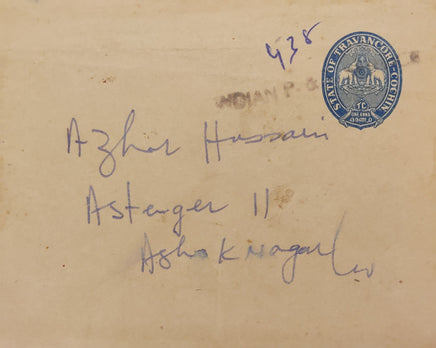 438
STATE OF TRAVANCORE-COCHIN
TC
ONE ANNA
INDIAN P. &
Azhar Hussain
11
Ashok Nagar